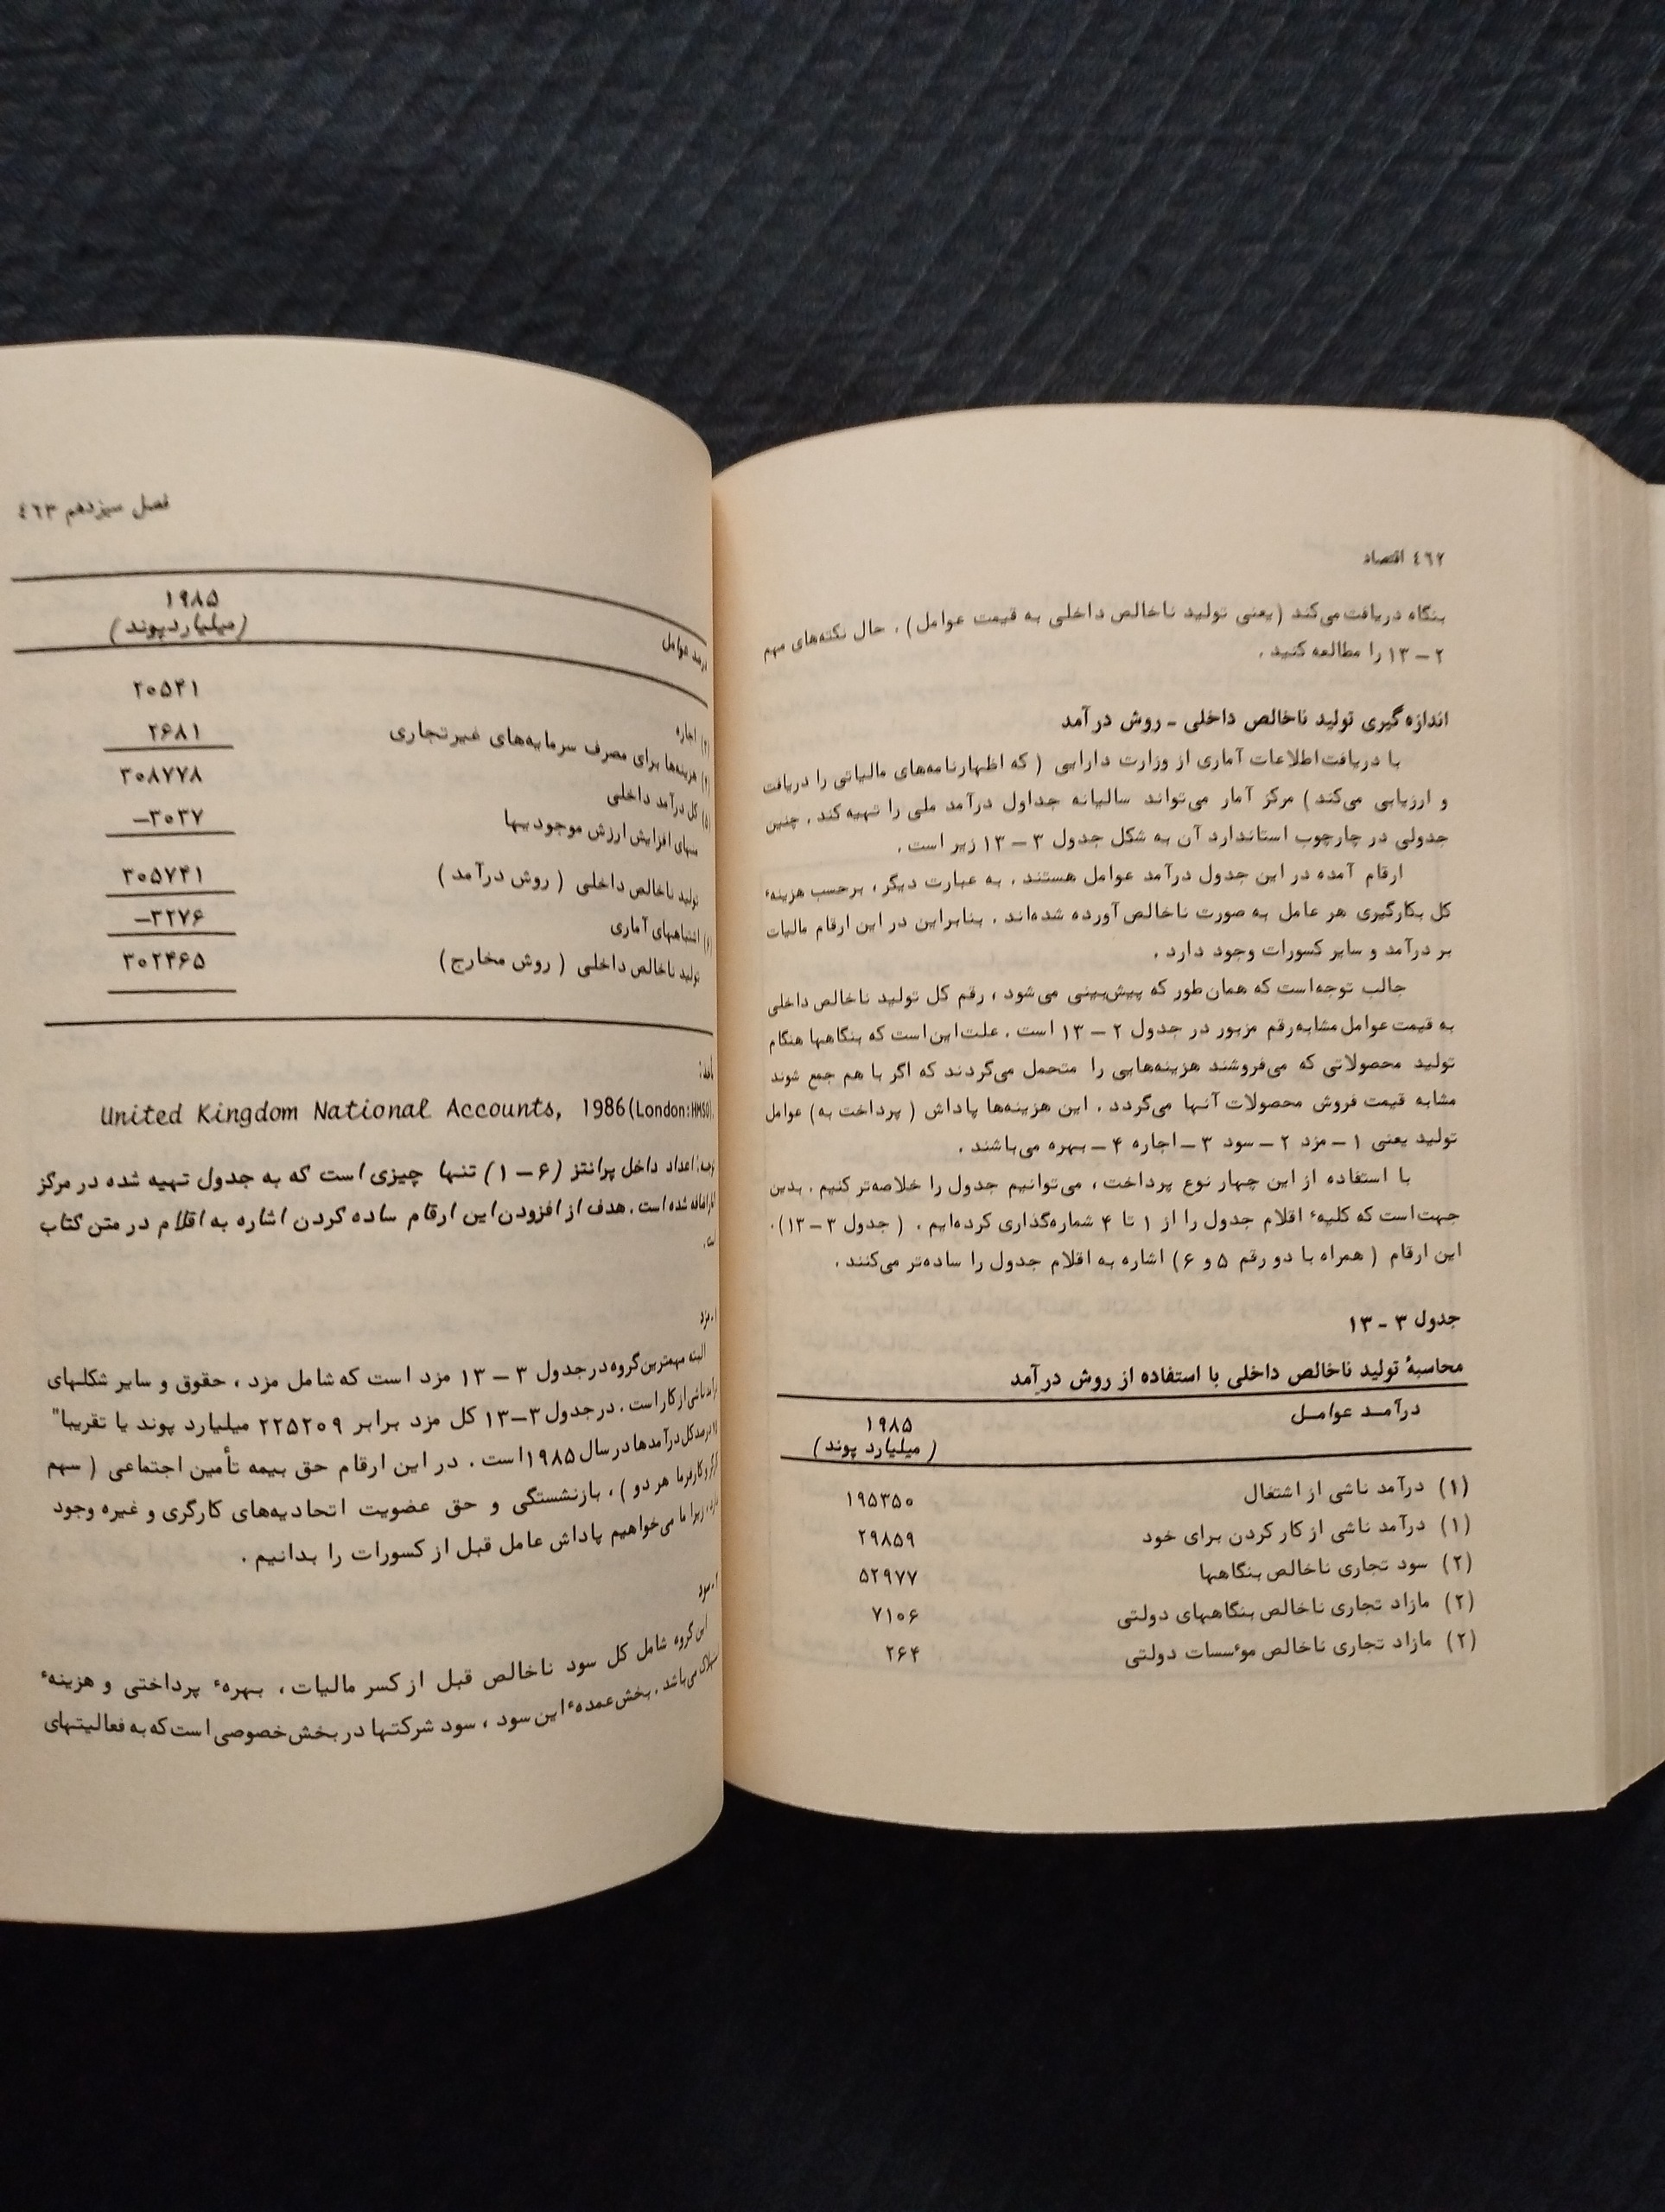 ٤٦٢ اقتصاد
بنگاه دریافت می‌کند (یعنی تولید ناخالص داخلی به قیمت عوامل). حال نکته‌های مهم
۲ – ۱۳ را مطالعه کنید.
اندازه گیری تولید ناخالص داخلی ـ روش درآمد
با دریافت اطلاعات آماری از وزارت دارایی ( که اظهارنامه‌های مالیاتی را دریافت
و ارزیابی می‌کند) مرکز آمار می‌تواند سالیانه جداول درآمد ملی را تهیه کند. چنین
جدولی در چارچوب استاندارد آن به شکل جدول ۳ – ۱۳ زیر است.
ارقام آمده در این جدول درآمد عوامل هستند. به عبارت دیگر، برحسب هزینهء
کل بکارگیری هر عامل به صورت ناخالص آورده شده‌اند. بنابراین در این ارقام مالیات
بر درآمد و سایر کسورات وجود دارد.
جالب توجه است که همان طور که پیش‌بینی می‌شود، رقم کل تولید ناخالص داخلی
به قیمت عوامل مشابه رقم مزبور در جدول ۲ – ۱۳ است. علت این است که بنگاهها هنگام
تولید محصولاتی که می‌فروشند هزینه‌هایی را متحمل می‌گردند که اگر با هم جمع شوند
مشابه قیمت فروش محصولات آنها می‌گردد. این هزینه‌ها پاداش ( پرداخت به) عوامل
تولید یعنی ۱ – مزد ۲ – سود ۳ – اجاره ۴ – بهره می‌باشند.
با استفاده از این چهار نوع پرداخت، می‌توانیم جدول را خلاصه‌تر کنیم. بدین
جهت است که کلیهء اقلام جدول را از ۱ تا ۴ شماره‌گذاری کرده‌ایم. ( جدول ۳ – ۱۳).
این ارقام ( همراه با دو رقم ۵ و ۶) اشاره به اقلام جدول را ساده‌تر می‌کنند.
جدول ۳ - ۱۳
محاسبهٔ تولید ناخالص داخلی با استفاده از روش درآمد
درآمد عوامل ۱۹۸۵
( میلیارد پوند)
(۱) درآمد ناشی از اشتغال ۱۹۵۳۵۰
(۱) درآمد ناشی از کار کردن برای خود ۲۹۸۵۹
(۲) سود تجاری ناخالص بنگاهها ۵۲۹۷۷
(۲) مازاد تجاری ناخالص بنگاههای دولتی ۷۱۰۶
(۲) مازاد تجاری ناخالص موءسسات دولتی ۲۶۴
فصل سیزدهم ٤٦٣
عوامل ۱۹۸۵
(میلیارد پوند)
اجاره ۲۰۵۴۱
هزینه‌ها برای مصرف سرمایه‌های غیرتجاری ۲۶۸۱
(۵) کل درآمد داخلی ۳۰۸۷۷۸
افزایش ارزش موجودیها ۳۰۳۷–
تولید ناخالص داخلی ( روش درآمد ) ۳۰۵۷۴۱
(۶) اشتباههای آماری ۳۲۷۶–
تولید ناخالص داخلی ( روش مخارج) ۳۰۲۴۶۵
United Kingdom National Accounts, 1986(London:HMSO).
اعداد داخل پرانتز (۶ – ۱) تنها چیزی است که به جدول تهیه شده در مرکز
اضافه شده است. هدف از افزودن این ارقام ساده کردن اشاره به اقلام در متن کتاب
مزد
البته مهمترین گروه در جدول ۳ – ۱۳ مزد است که شامل مزد، حقوق و سایر شکلهای
ناشی از کار است. در جدول ۳–۱۳ کل مزد برابر ۲۲۵۲۰۹ میلیارد پوند یا تقریبا"
درصد کل درآمدها در سال ۱۹۸۵ است. در این ارقام حق بیمه تأمین اجتماعی ( سهم
کارگر و کارفرما هر دو )، بازنشستگی و حق عضویت اتحادیه‌های کارگری و غیره وجود
زیرا ما می‌خواهیم پاداش عامل قبل از کسورات را بدانیم.
سود
این گروه شامل کل سود ناخالص قبل از کسر مالیات، بهرهء پرداختی و هزینهء
استهلاک می‌باشد. بخش عمدهء این سود، سود شرکتها در بخش خصوصی است که به فعالیتهای